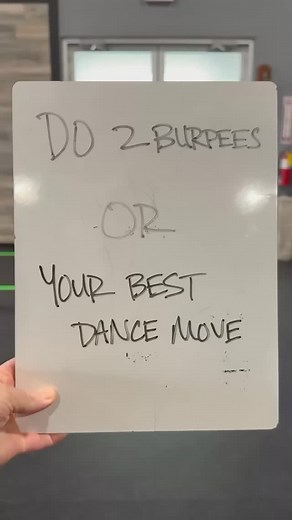 DO 2 BURPEES
OR
YOUR BEST
DANCE MOVE